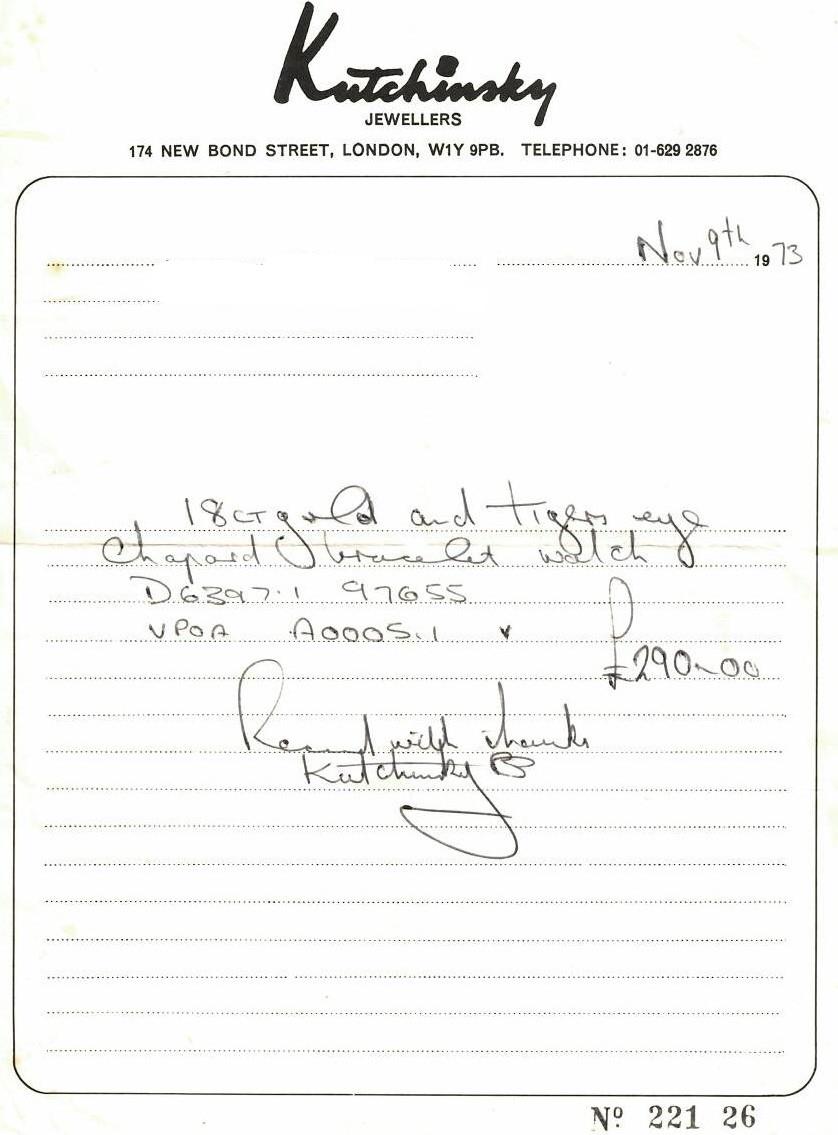 Kutchinsky
JEWELLERS
174 NEW BOND STREET, LONDON, W1Y 9PB. TELEPHONE: 01-629 2876
Nov 9th 1973
18CT gold and tigers eye
Chopard bracelet watch
D6397.1 97655
VPOA A0005.1
£290-00
Received with thanks
Kutchinsky
Nº 221 26